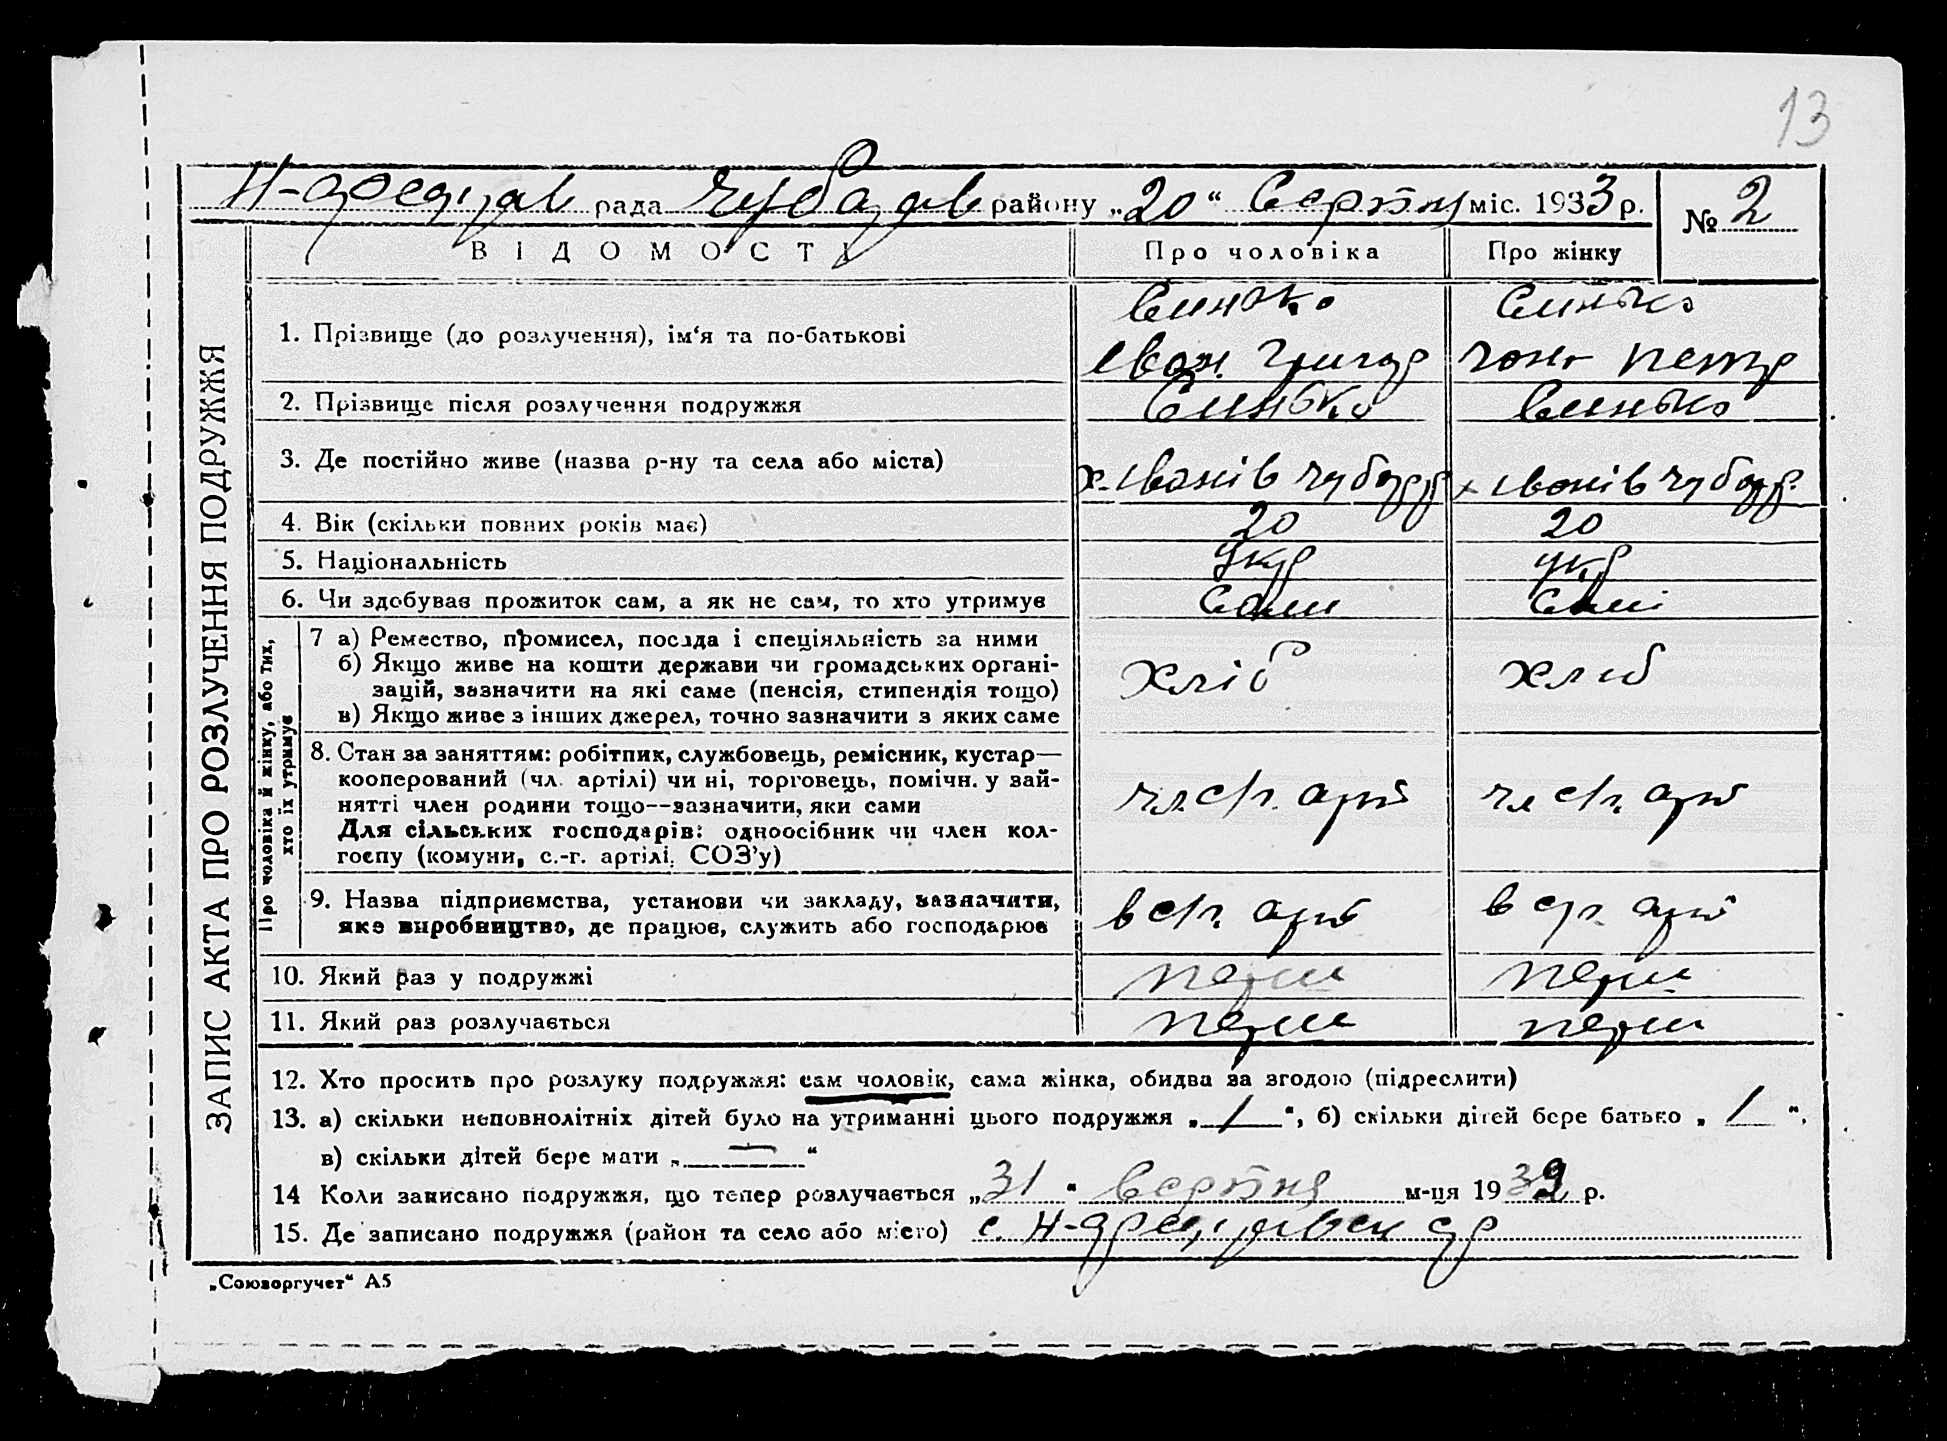 13
рада Чубарів району „20“ Серпня міс. 1933 р. № 2
ВІДОМОСТІ Про чоловіка Про жінку
ЗАПИС АКТА ПРО РОЗЛУЧЕННЯ ПОДРУЖЖЯ
Синько Синько
1. Прізвище (до розлучення), ім‘я та по-батькові
Іван Григор Петр
2. Прізвище після розлучення подружжя Синько Синько
3. Де постійно живе (назва р-ну та села або міста)
х. Іванів Чубар р х Іванів Чубар р.
4. Вік (скільки повних років має) 20 20
5. Національність Укр укр
6. Чи здобуває прожиток сам, а як не сам, то хто утримує Сами Самі
Про чоловіка й жінку, або тих,
хто їх утримує
7 а) Ремество, промисел, посада і спеціяльність за ними
б) Якщо живе на кошти держави чи громадських органі-
зацій, зазначити на які саме (пенсія, стипендія тощо) Хліб Хліб
в) Якщо живе з інших джерел, точно зазначити з яких саме
8. Стан за заняттям: робітник, службовець, ремісник, кустар—
кооперований (чл. артілі) чи ні, торговець, помічн. у зай-
нятті член родини тощо--зазначити, яки сами чл с/г. арт чл с/г. арт
Для сільських господарів: одноосібник чи член кол-
госпу (комуни, с.-г. артілі, СОЗ’у)
9. Назва підприємства, установи чи закладу, зазначити,
яке виробництво, де працює, служить або господарює в с/г. арт в с/г. арт
10. Який раз у подружжі перш перш
11. Який раз розлучається перш перш
12. Хто просить про розлуку подружжя: сам чоловік, сама жінка, обидва за згодою (підреслити)
13. а) скільки неповнолітніх дітей було на утриманні цього подружжя „1“, б) скільки дітей бере батько „1“,
в) скільки дітей бере мати „—“
14 Коли записано подружжя, що тепер розлучається „31“ Серпня м-ця 1932 р.
15. Де записано подружжя (район та село або місто) с.
„Союзоргучет“ А5